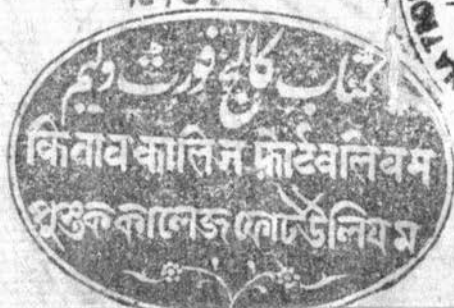 کتاب کالج فورٹ ولیم
किताब कालिज फोर्टवलियम
পুস্তক কালেজ ফোর্টউলিয়ম